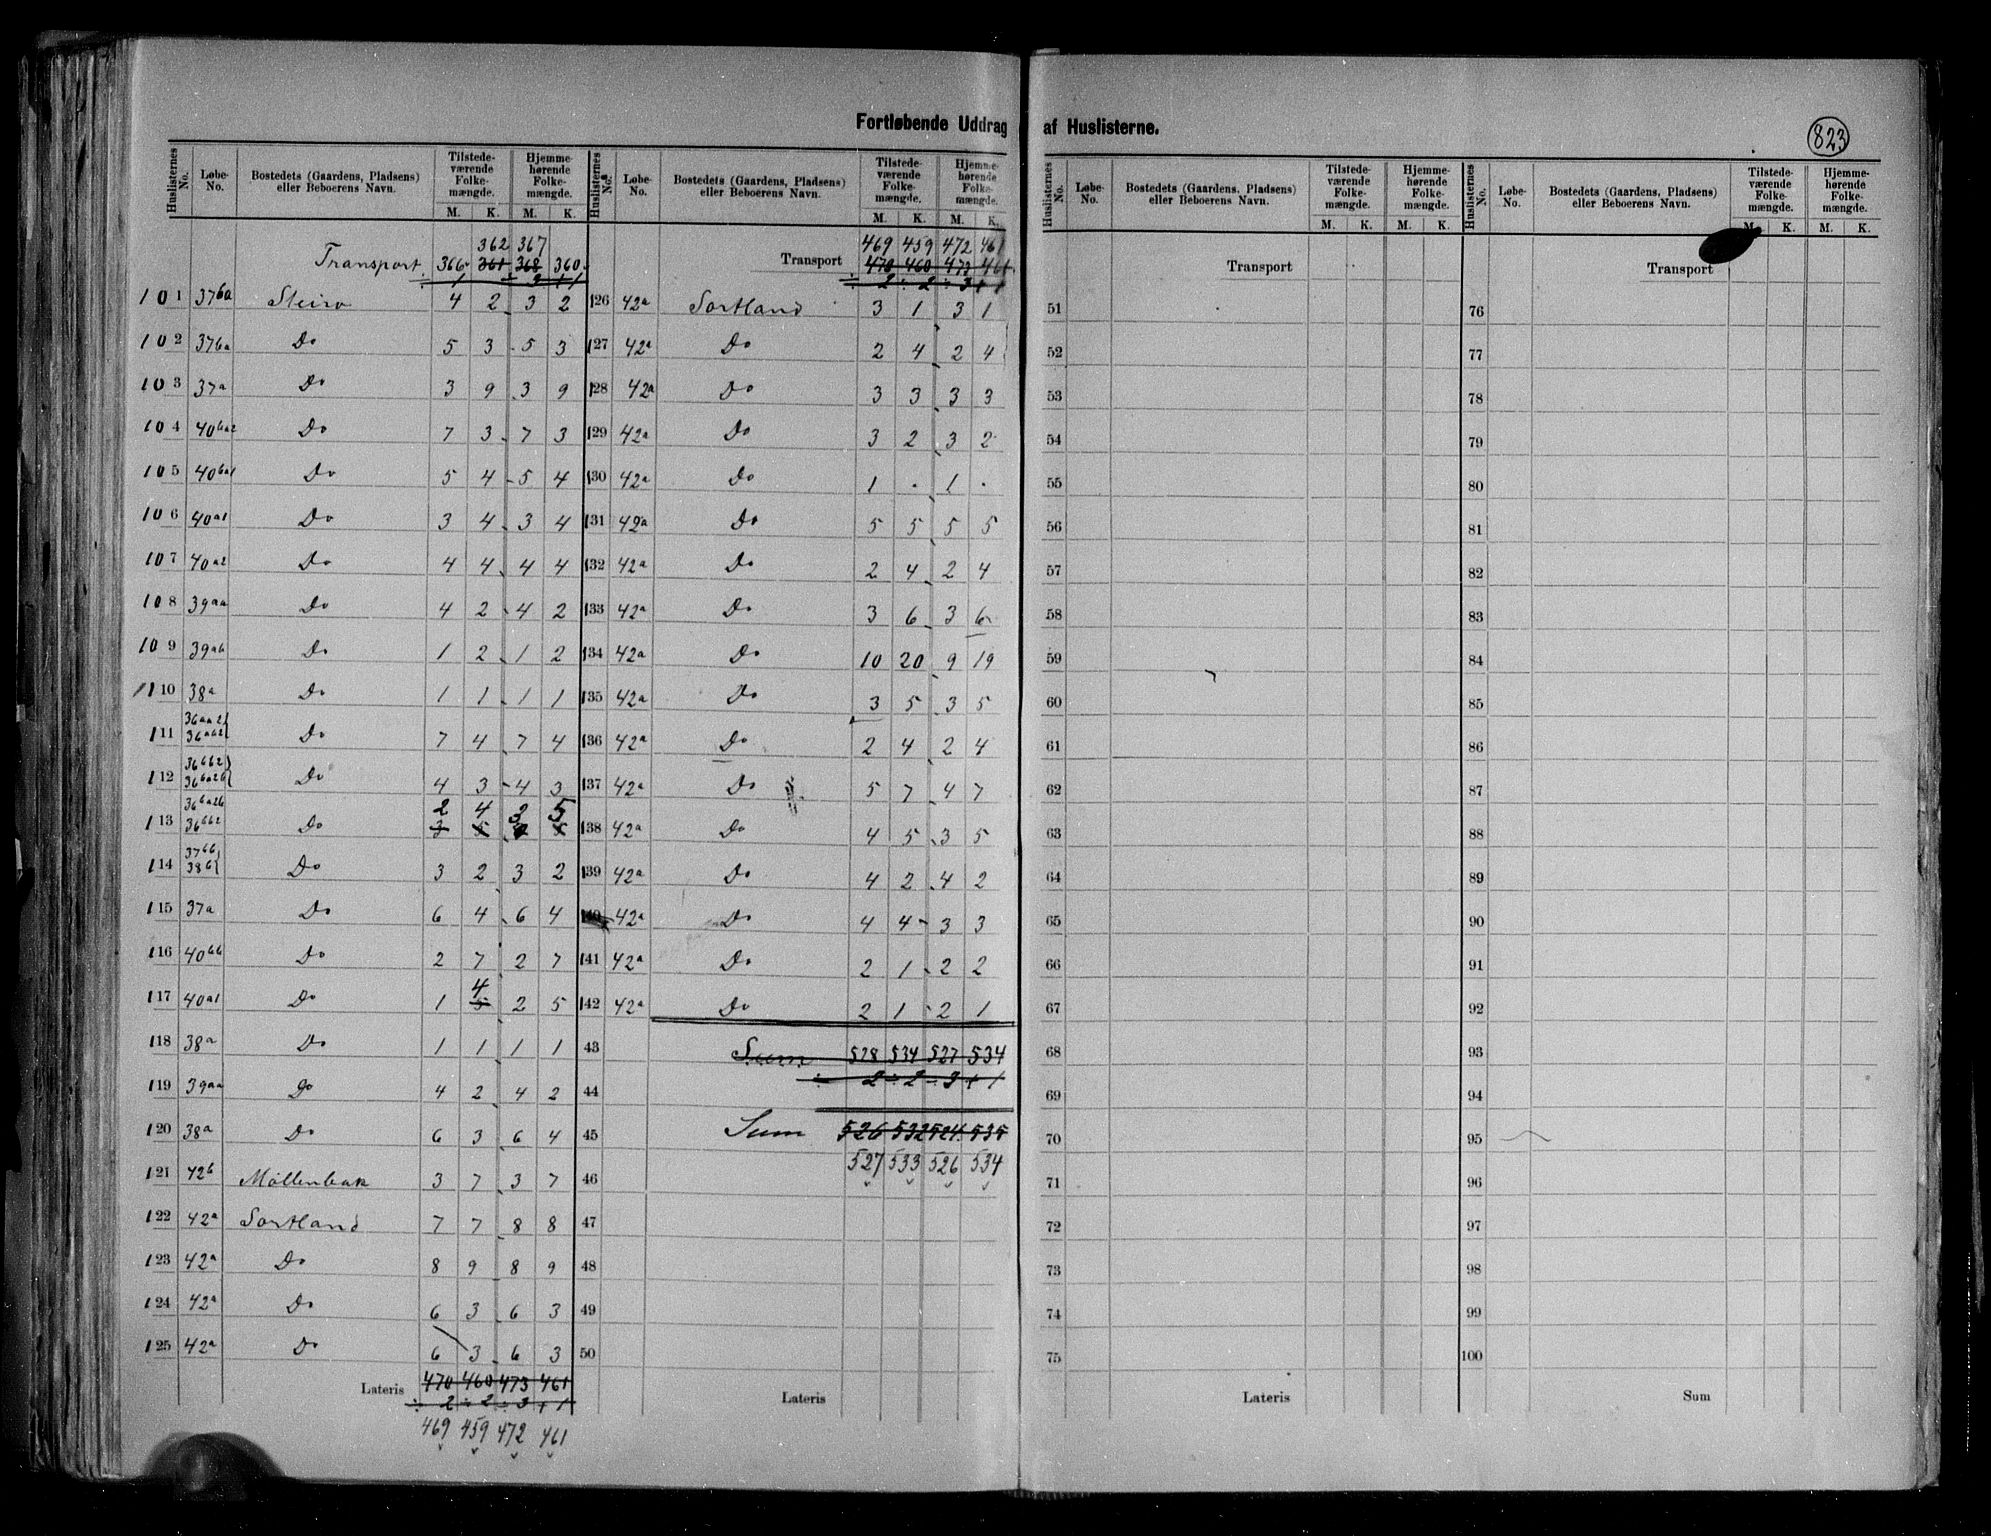 Fortløbende Uddrag af Huslisternes.
823
Huslisternes No. Løbe-No. Bostedets (Gaardens, Pladsens) eller Beboerens Navn. Tilstedeværende Folkemængde. Hjemmehørende Folkemængde. M. K. M. K.
Transport 366 361 368 360
362 367
101 37ba Steiro 4 2 3 2
102 37ba Do 5 3 5 3
103 37a Do 3 9 3 9
104 40ba2 Do 7 3 7 3
105 40ba1 Do 5 4 5 4
106 40a1 Do 3 4 3 4
107 40a2 Do 4 4 4 4
108 39aa Do 4 2 4 2
109 39ab Do 1 2 1 2
110 38a Do 1 1 1 1
111 36aa2 36ab2 Do 7 4 7 4
112 36bb2 36ba2b Do 4 3 4 3
113 36ba2b 36bb2 Do 2 4 3 5
114 37bb 38b Do 3 2 3 2
115 37a Do 6 4 6 4
116 40bb Do 2 7 2 7
117 40a1 Do 1 4 2 5
118 38a Do 1 1 1 1
119 39aa Do 4 2 4 2
120 38a Do 6 3 6 4
121 42b Møllenbak 3 7 3 7
122 42a Sortland 7 7 8 8
123 42a Do 8 9 8 9
124 42a Do 6 3 6 3
125 42a Do 6 3 6 3
Lateris 470 460 473 461
÷ 2 ÷ 2 ÷ 3 + 1
469 459 472 461
Huslisternes No. Løbe-No. Bostedets (Gaardens, Pladsens) eller Beboerens Navn. Tilstedeværende Folkemængde. Hjemmehørende Folkemængde. M. K. M. K.
469 459 472 461
Transport 470 460 473 461
÷ 2 ÷ 2 ÷ 3 + 1
126 42a Sortland 3 1 3 1
127 42a Do 2 4 2 4
128 42a Do 3 3 3 3
129 42a Do 3 2 3 2
130 42a Do 1 . 1 .
131 42a Do 5 5 5 5
132 42a Do 2 4 2 4
133 42a Do 3 6 3 6
134 42a Do 10 20 9 19
135 42a Do 3 5 3 5
136 42a Do 2 4 2 4
137 42a Do 5 7 4 7
138 42a Do 4 5 3 5
139 42a Do 4 2 4 2
140 42a Do 4 4 3 3
141 42a Do 2 1 2 2
142 42a Do 2 1 2 1
43 Sum 528 534 527 534
÷ 2 ÷ 2 ÷ 3 + 1
44
45 Sum 526 532 524 535
527 533 526 534
46
47
48
49
50
Lateris
Huslisternes No. Løbe-No. Bostedets (Gaardens, Pladsens) eller Beboerens Navn. Tilstedeværende Folkemængde. Hjemmehørende Folkemængde. M. K. M. K.
Transport
51
52
53
54
55
56
57
58
59
60
61
62
63
64
65
66
67
68
69
70
71
72
73
74
75
Lateris
Huslisternes No. Løbe-No. Bostedets (Gaardens, Pladsens) eller Beboerens Navn. Tilstedeværende Folkemængde. Hjemmehørende Folkemængde. M. K. M. K.
Transport
76
77
78
79
80
81
82
83
84
85
86
87
88
89
90
91
92
93
94
95
96
97
98
99
100
Sum